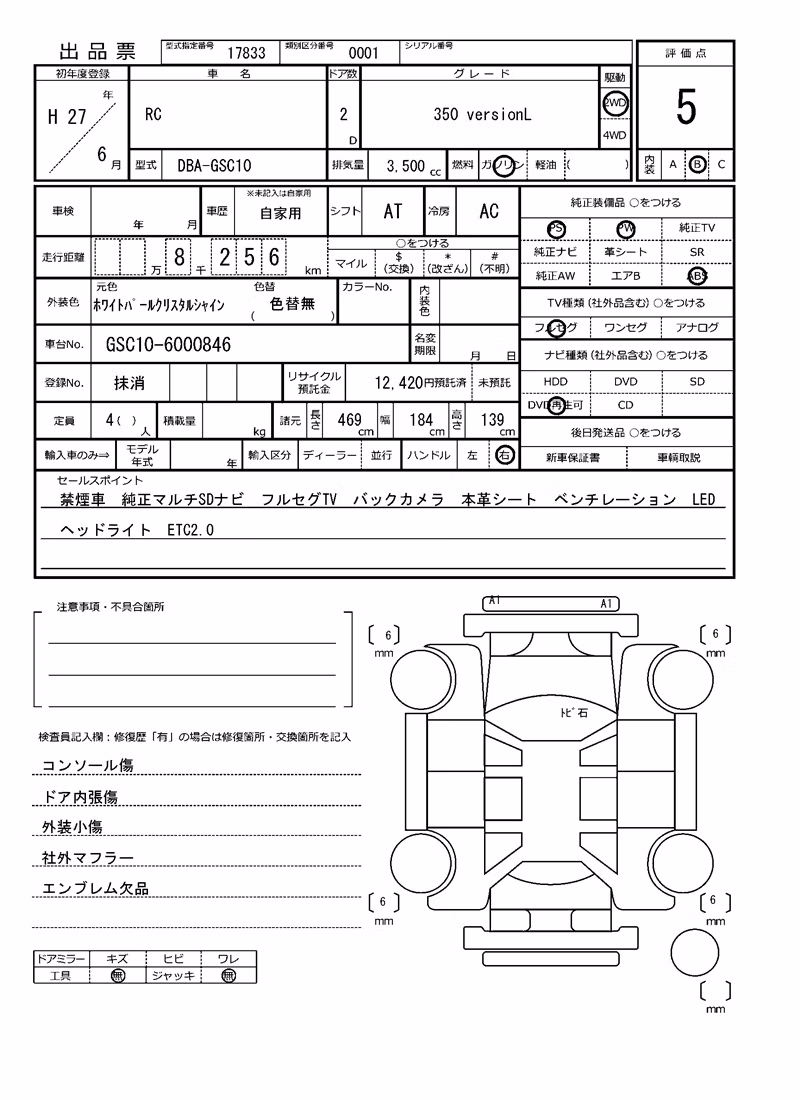 出品票 型式指定番号 17833 類別区分番号 0001 シリアル番号
評価点
5
内装 A B C
初年度登録 車名 ドア数 グレード 駆動
H 27 年 6 月 RC 2 D 350 versionL 2WD
4WD
型式 DBA-GSC10 排気量 3,500 cc 燃料 ガソリン 軽油 ( )
車検 年 月 車歴 ※未記入は自家用 自家用 シフト AT 冷房 AC
走行距離 万 8 千 2 5 6 km ○をつける
マイル $(交換) *(改ざん) #(不明)
外装色 元色 ホワイトパールクリスタルシャイン 色替 ( 色替無 ) カラーNo. 内装色
車台No. GSC10-6000846 名変期限 月 日
登録No. 抹消 リサイクル預託金 12,420円預託済 未預託
定員 4( ) 人 積載量 kg 諸元 長さ 469 cm 幅 184 cm 高さ 139 cm
輸入車のみ⇒ モデル年式 年 輸入区分 ディーラー 並行 ハンドル 左 右
純正装備品 ○をつける
PS PW 純正TV
純正ナビ 革シート SR
純正AW エアB ABS
TV種類(社外品含む)○をつける
フルセグ ワンセグ アナログ
ナビ種類(社外品含む)○をつける
HDD DVD SD
DVD再生可 CD
後日発送品 ○をつける
新車保証書 車輌取説
セールスポイント
禁煙車 純正マルチSDナビ フルセグTV バックカメラ 本革シート ベンチレーション LED
ヘッドライト ETC2.0
注意事項・不具合箇所
検査員記入欄：修復歴「有」の場合は修復箇所・交換箇所を記入
コンソール傷
ドア内張傷
外装小傷
社外マフラー
エンブレム欠品
ドアミラー キズ ヒビ ワレ
工具 無 ジャッキ 無
A1 A1
[ 6 ] mm [ 6 ] mm
トビ石
[ 6 ] mm [ 6 ] mm
[ ] mm